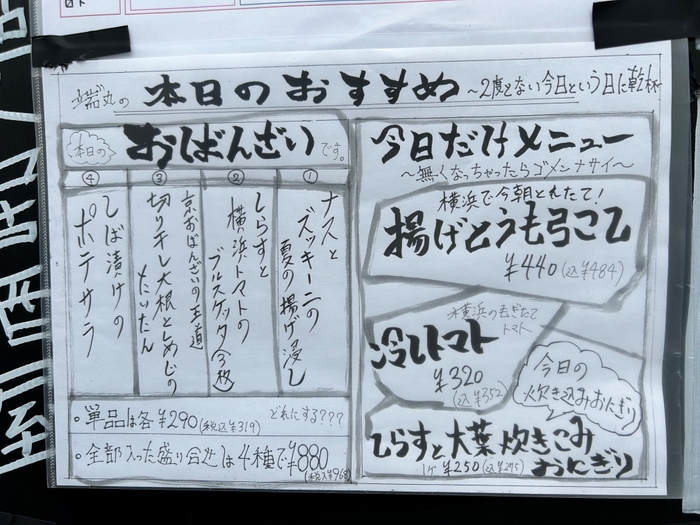 端丸の 本日のおすすめ ~2度とない今日という日に乾杯~
本日の おばんざい です。
①
ナスと
ズッキーニの
夏の揚げ浸し
②
しらすと
横浜トマトの
ブルスケッタ(2枚)
③
京おばんざいの王道
切りキレ大根としめじの
たいたん
④
しば漬けの
ポテサラ
・単品は各¥290(税込¥319) どれにする???
・全部入った盛り合せは4種で¥880
(税込¥968)
今日だけメニュー
~無くなっちゃったらゴメンナサイ~
横浜で今朝とれたて!
揚げとうもろこし
¥440(込¥484)
横浜のもぎたて
トマト
冷しトマト
¥320
(込¥352)
今日の
炊き込みおにぎり
しらすと大葉炊きこみ
おにぎり
1ケ¥250(込¥275)
居酒屋